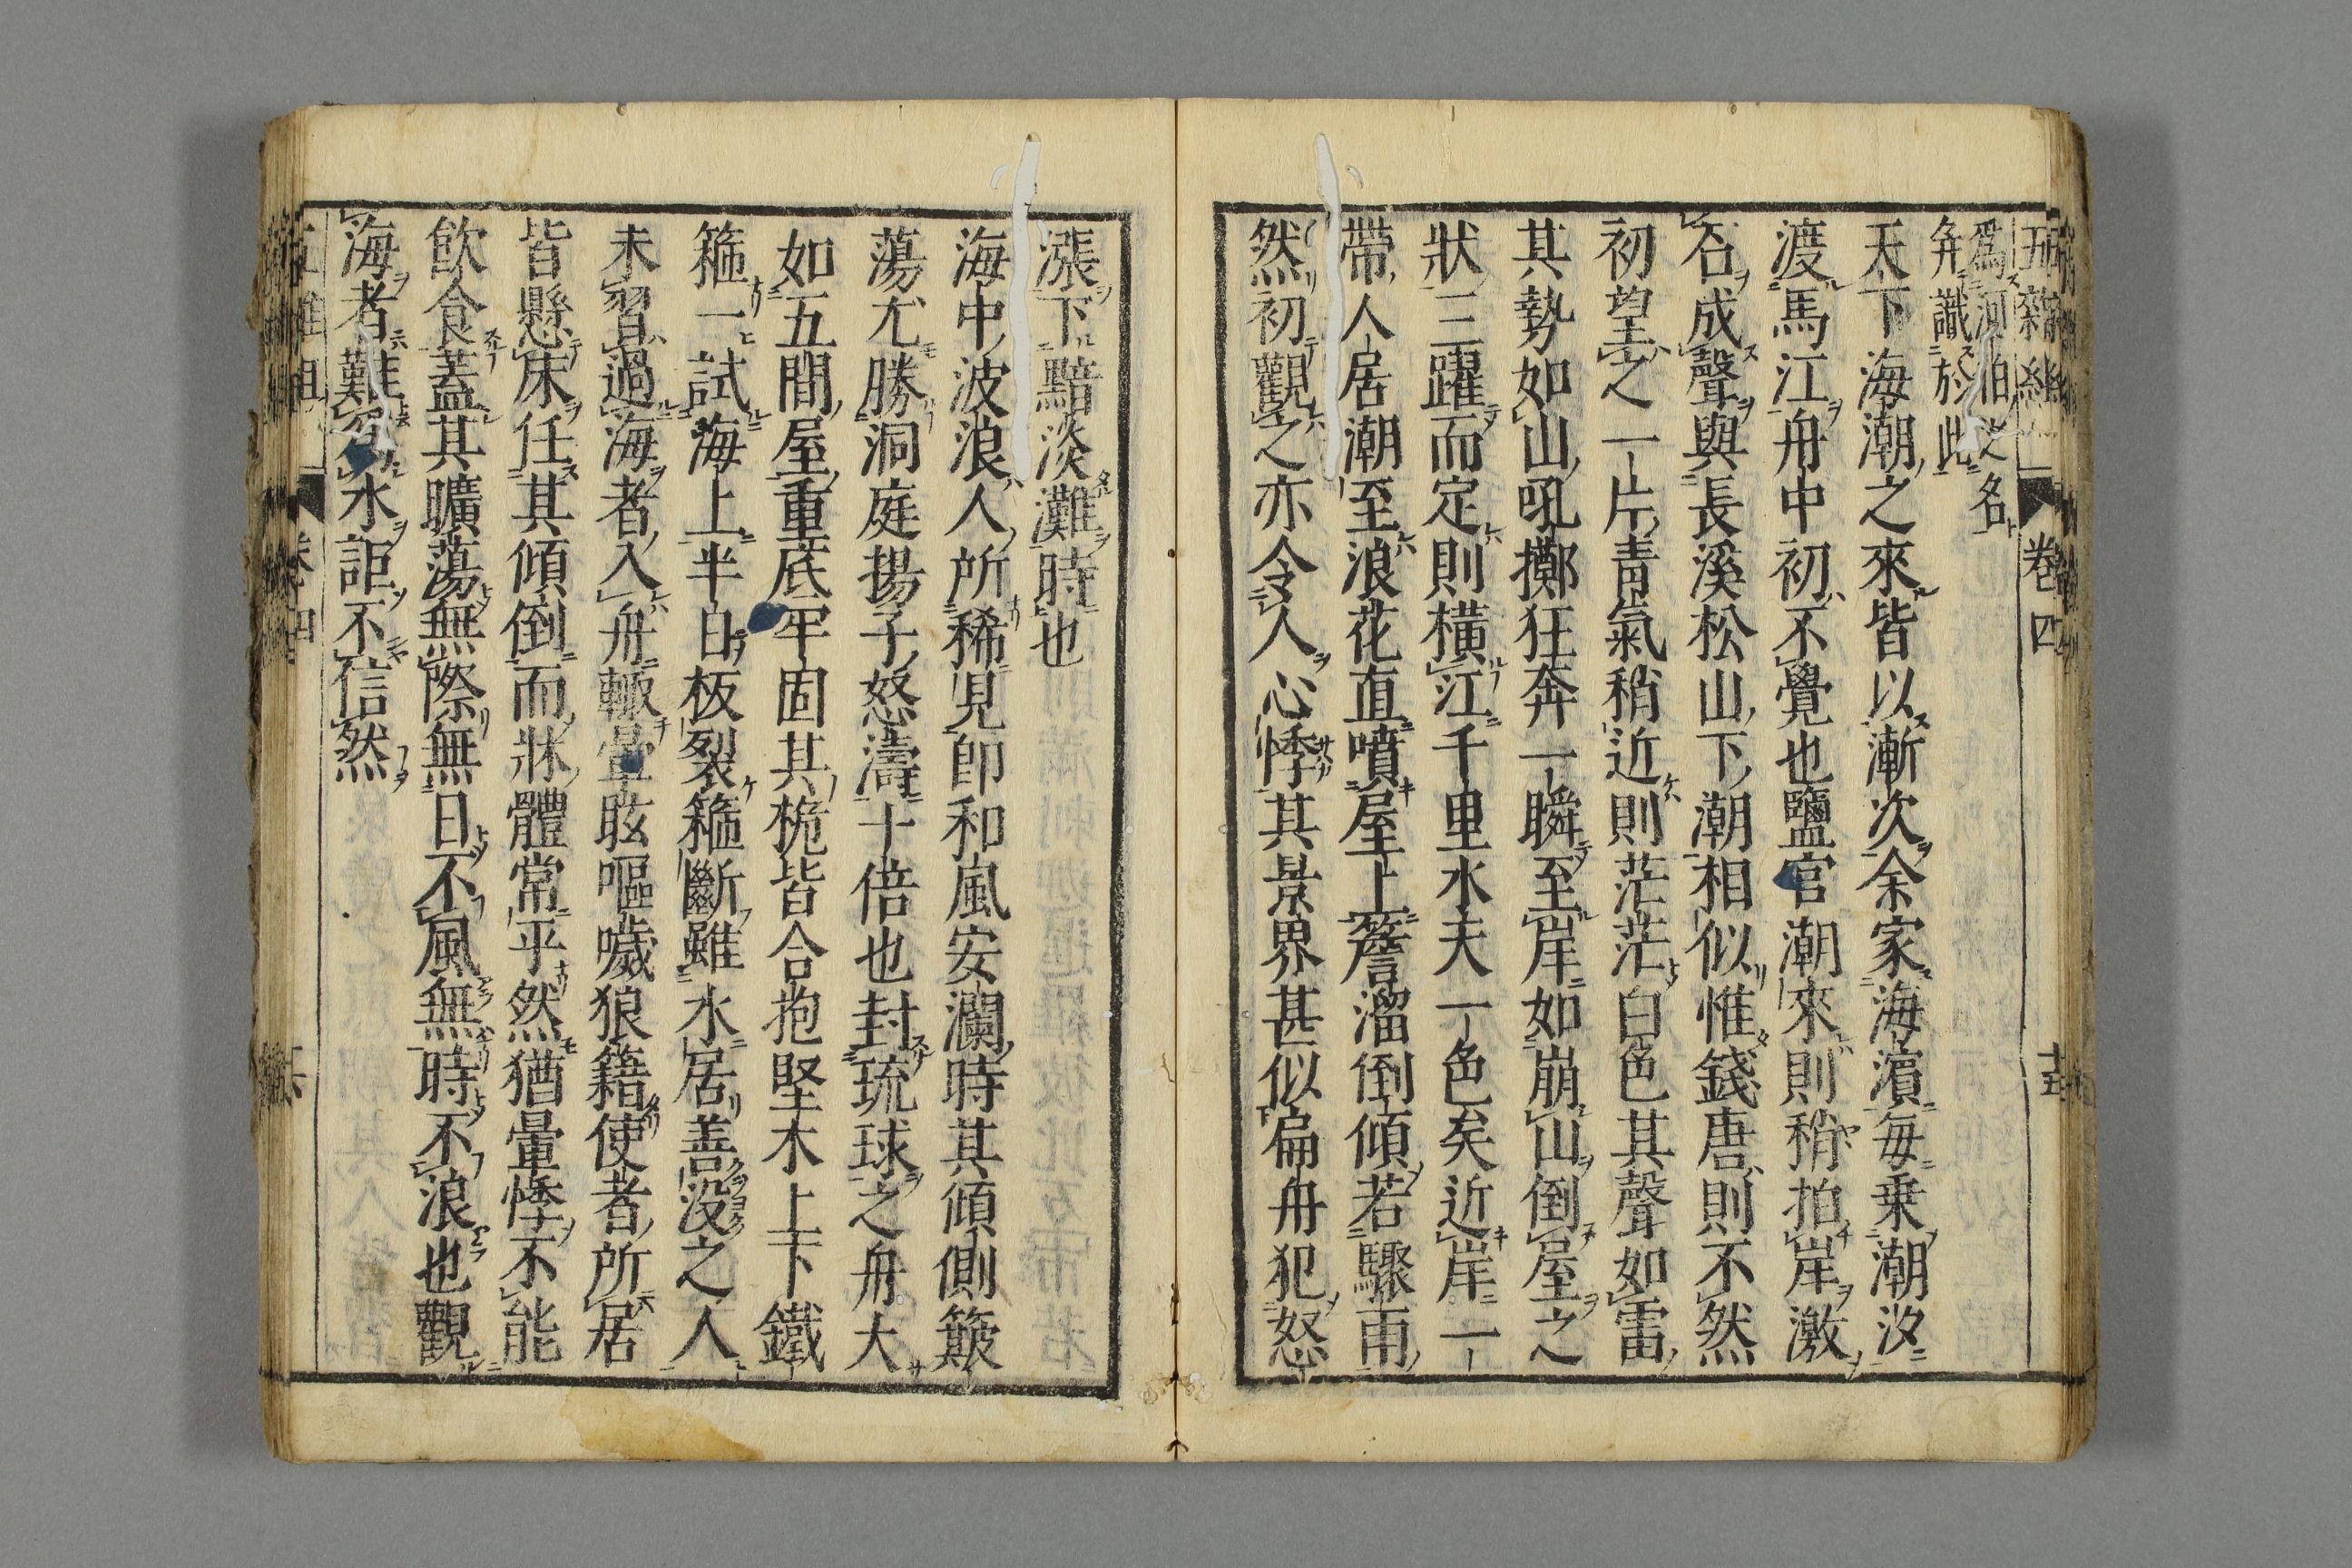 五雜組
卷四
十五
爲河伯之名
弁識於此
天下海潮之來皆以漸次余家海濵每乗潮汐
渡馬江舟中初不覺也鹽官潮來則稍拍岸激
石成聲與長溪松山下潮相似惟錢唐則不然
初望之一片青氣稍近則茫茫白色其聲如雷
其勢如山吼擲狂奔一瞬至岸如崩山倒屋之
狀三躍而定則橫江千里水天一色矣近岸一
帶人居潮至浪花直噴屋上簷溜倒傾若驟雨
然初觀之亦令人心悸其景界甚似扁舟犯怒
漲下黯淡灘時也
海中波浪人所稀見卽和風安瀾時其傾側簸
蕩尤勝洞庭揚子怒濤十倍也封琉球之舟大
如五間屋重底牢固其桅皆合抱堅木上下鐵
箍一試海上半日板裂箍斷雖水居善没之人
未習過海者入舟輙暈眩嘔噦狼籍使者所居
皆懸床任其傾倒而牀體常平然猶暈悸不能
飮食蓋其曠蕩無際無日不風無時不浪也觀
海者難爲水詎不信然
五雜組
卷四